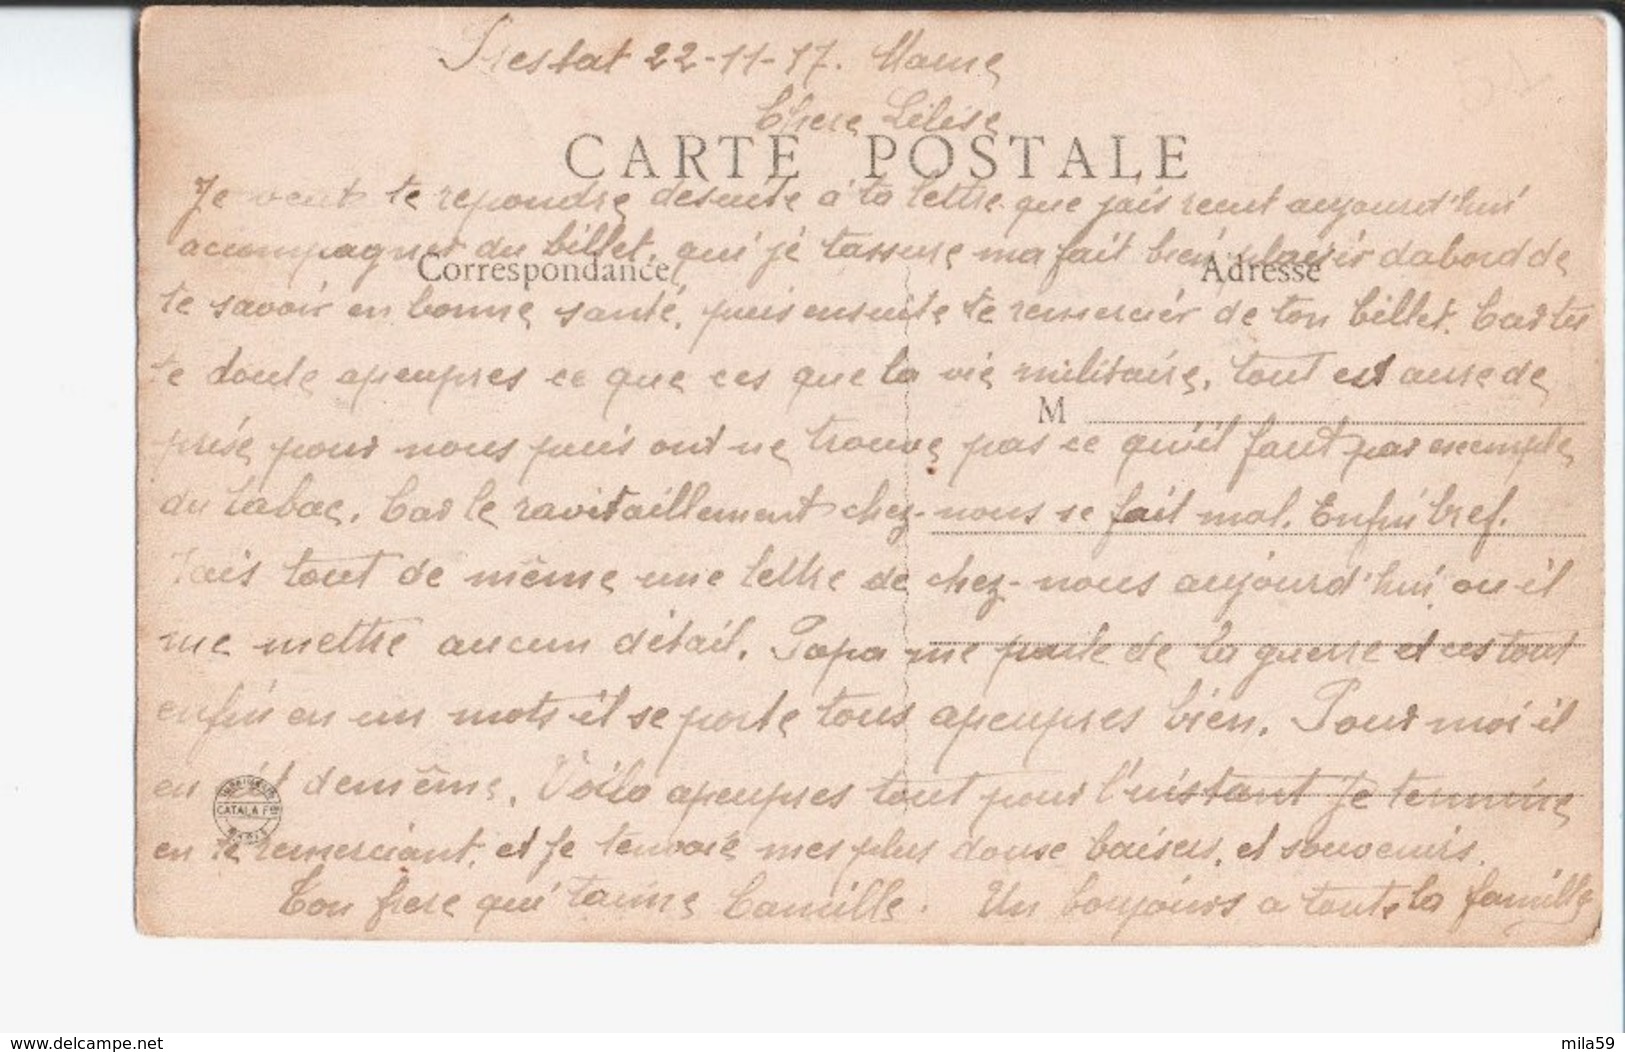 22-11-17. Marne
51
Chere Lilise
CARTE POSTALE
Je veut te repondre desuite a ta lettre que jais recut aujourd'hui
accompagner du billet, qui je tassure ma fait bien plaisir dabord de
Correspondance
Adresse
te savoir en bonne santé, puis ensuite te remercier de ton billet. Car tu
te doute apeupres ce que ces que la vie militaire, tout est aure de
M
prise pour nous puis ont ne trouve pas ce qu'il faut par exemple
du tabac. Car le ravitaillement chez-nous se fait mal. Enfin bref.
Jais tout de même une lettre de chez-nous aujourd'hui ou il
me mettre aucun détail. Papa me parle de la guerre et ces tout
enfin en un mots il se porte tous apeupres bien. Pour moi il
en est demême. Voila apeupres tout pour l'instant Je termine
CATALA Fres
PARIS
en te remerciant, et Je tenvoie mes plus douse baisers, et souvenirs.
Ton frere qui taime Camille. Un bonjours a toute la famille
www.delcampe.net
mila59